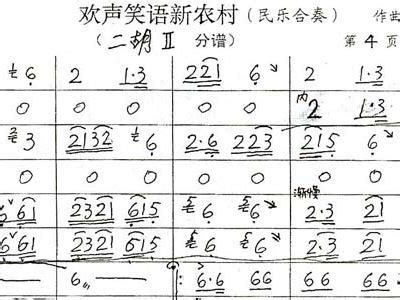 欢声笑语新农村(民乐合奏) 作曲
(二胡II 分谱) 第4页
6 | 2 1·3 | 221 6 | 2 1·3
0 | 0 0 | 0 0 | 内 2 1·3
3 | 2132 6 | 2·6 223 | 215 6
0 | 0 0 | 0 0 | 0 0
渐慢
661 | 2321 615 | 6 6 | 2·3 21
661 | 2321 615 | 6 6 | 2·3 21
6 — | 6·6 66 | 66 66